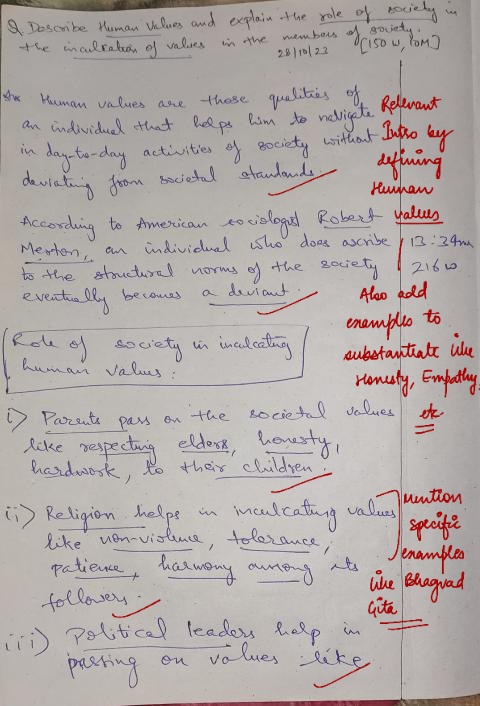 Q. Describe Human Values and explain the role of society in
the inculcation of values in the members of society.
28/10/23 [150 W, 10M]
Human values are those qualities of
an individual that helps him to navigate
in day-to-day activities of society without
deviating from societal standards.
Relevant
Intro by
defining
Human
values
According to American sociologist Robert
Merton, an individual who does ascribe
to the structural norms of the society
eventually becomes a deviant.
13:34m
216 w
Also add
examples to
substantiate like
Honesty, Empathy,
etc
Role of society in inculcating
human values:
i) Parents pass on the societal values
like respecting elders, honesty,
hardwork, to their children.
ii) Religion helps in inculcating values
like non-violence, tolerance,
patience, harmony among its
followers.
mention
specific
examples
like Bhagvad
Gita
iii) Political leaders help in
passing on values like